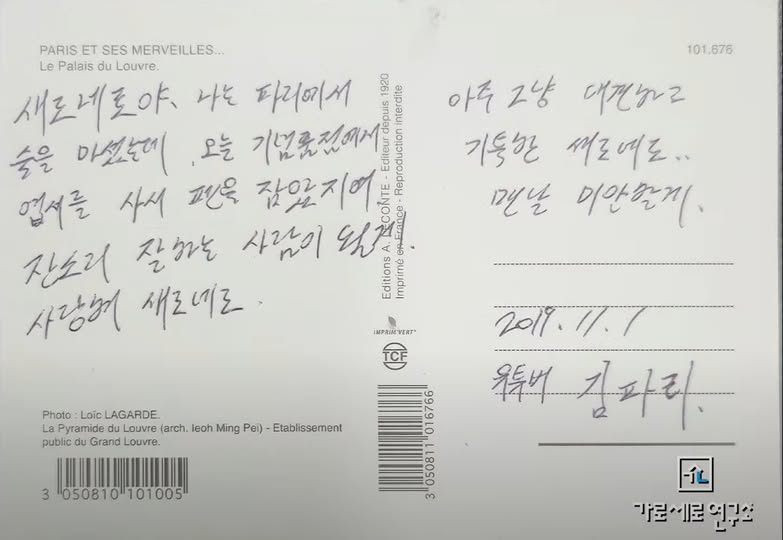 PARIS ET SES MERVEILLES...
Le Palais du Louvre.
101.676
새로네로야, 나는 파리에서
술을 마셨는데, 오늘 기념품점에서
엽서를 사서 펜을 잡았지여.
잔소리 잘하는 사람이 될게!
사랑혀 새로네로.
아주 그냥 대견하고
기특한 새로네로..
맨날 미안할게.
2019. 11. 1
유투버 김파리.
Editions A. LECONTE - Editeur depuis 1920
Imprimé en France - Reproduction interdite
IMPRIM'VERT®
TCF
3 050811 016766
Photo : Loïc LAGARDE.
La Pyramide du Louvre (arch. Ieoh Ming Pei) - Etablissement
public du Grand Louvre.
3 050810 101005
가로세로연구소